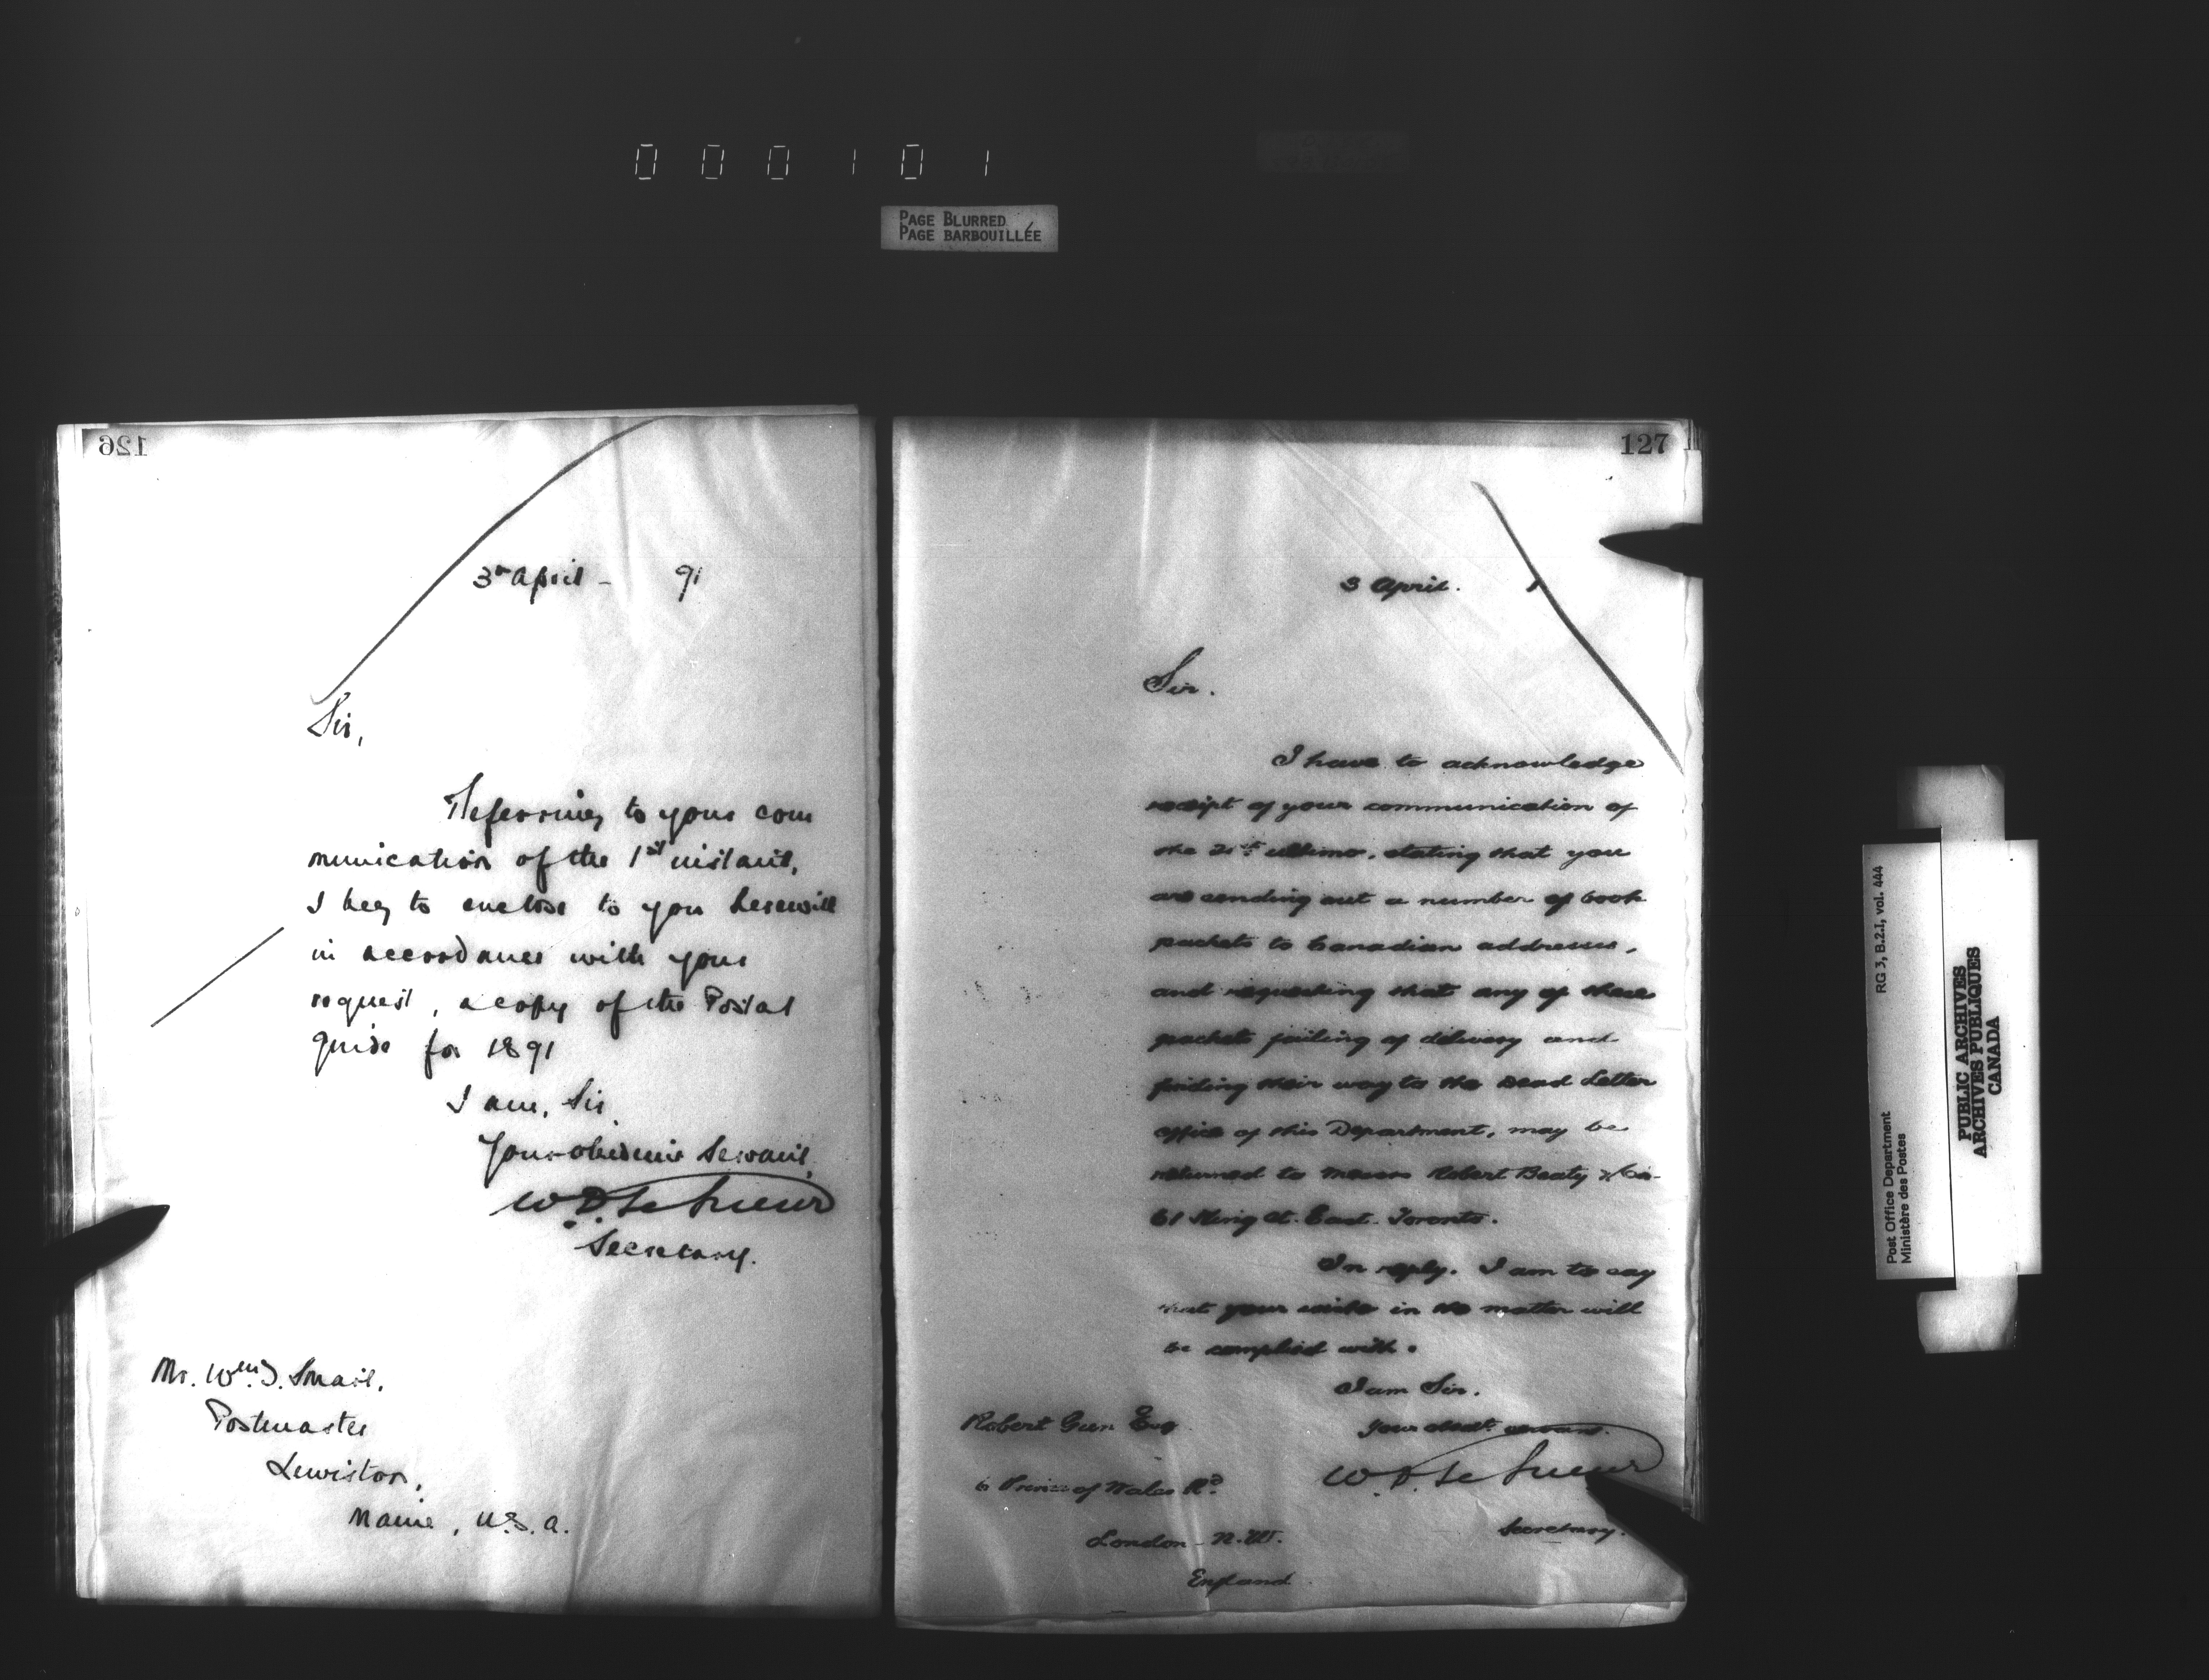 000101
PAGE BLURRED
PAGE BARBOUILLÉE
126
3rd April - 91
Sir,
Referring to your com
munication of the 1st instant,
I beg to enclose to you herewith
in accordance with your
request, a copy of the Postal
Guide for 1891
I am, Sir
Your obedient Servant,
W. D. Le Sueur
Secretary.
Mr. Wm. J. Smail,
Postmaster
Lewiston,
Maine, U.S.A.
127
3 April. 1
Sir.
I have to acknowledge
receipt of your communication of
the 21st ultimo, stating that you
are sending out a number of book
packets to Canadian addresses,
and requesting that any of these
packets failing of delivery and
finding their way to the Dead Letter
office of this Department, may be
returned to Messrs Robert Beaty & Co.
61 King St. East. Toronto.
In reply, I am to say
that your wishes in the matter will
be complied with.
I am Sir.
Your obedt. servant.
W. D. Le Sueur
Secretary.
Robert Esq
6 Prince of Wales Rd.
London - N.W.
England
Post Office Department
Ministère des Postes
RG 3, B.2.I, vol. 444
PUBLIC ARCHIVES
ARCHIVES PUBLIQUES
CANADA